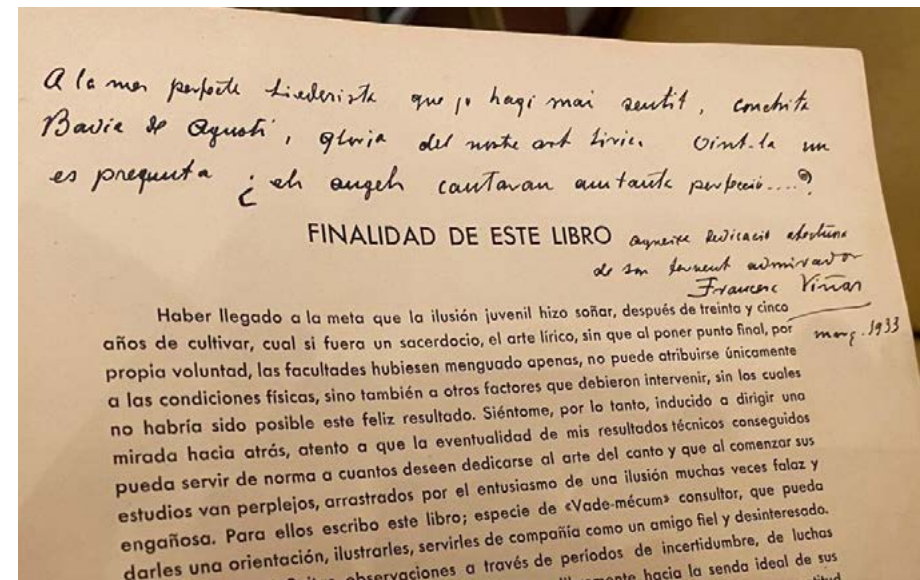 A la mes perfecte liederista que jo hagi mai sentit, conchita
Badia de Agustí, gloria del nostre art liric. Oint-la un
es pregunta ¿els angels cantaran amb tanta perfecció....?
FINALIDAD DE ESTE LIBRO
aqueixa dedicació afectuosa
de son fervent admirador
Francesc Viñas
març. 1933
Haber llegado a la meta que la ilusión juvenil hizo soñar, después de treinta y cinco
años de cultivar, cual si fuera un sacerdocio, el arte lírico, sin que al poner punto final, por
propia voluntad, las facultades hubiesen menguado apenas, no puede atribuirse únicamente
a las condiciones físicas, sino también a otros factores que debieron intervenir, sin los cuales
no habría sido posible este feliz resultado. Siéntome, por lo tanto, inducido a dirigir una
mirada hacia atrás, atento a que la eventualidad de mis resultados técnicos conseguidos
pueda servir de norma a cuantos deseen dedicarse al arte del canto y que al comenzar sus
estudios van perplejos, arrastrados por el entusiasmo de una ilusión muchas veces falaz y
engañosa. Para ellos escribo este libro; especie de «Vade-mécum» consultor, que pueda
darles una orientación, ilustrarles, servirles de compañía como un amigo fiel y desinteresado.
observaciones a través de períodos de incertidumbre, de luchas
hacia la senda ideal de sus